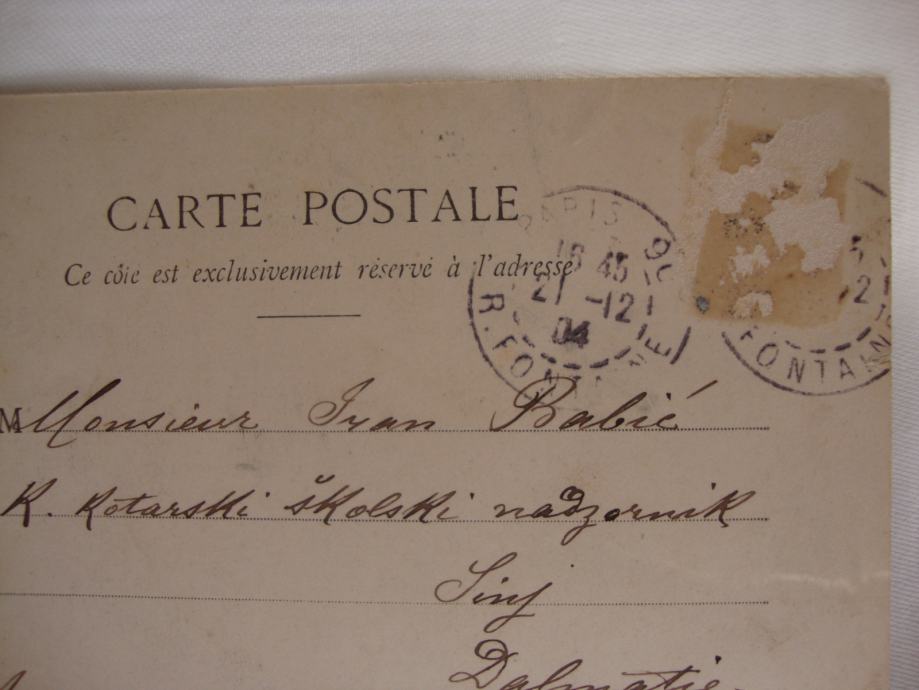 CARTE POSTALE
Ce côté est exclusivement réservé à l'adresse
PARIS
15 45
21 -12
04
R. FONTAINE
5
12
FONTAINE
Monsieur Ivan Babić
K. Kotarski školski nadzornik
Sinj
Dalmatie